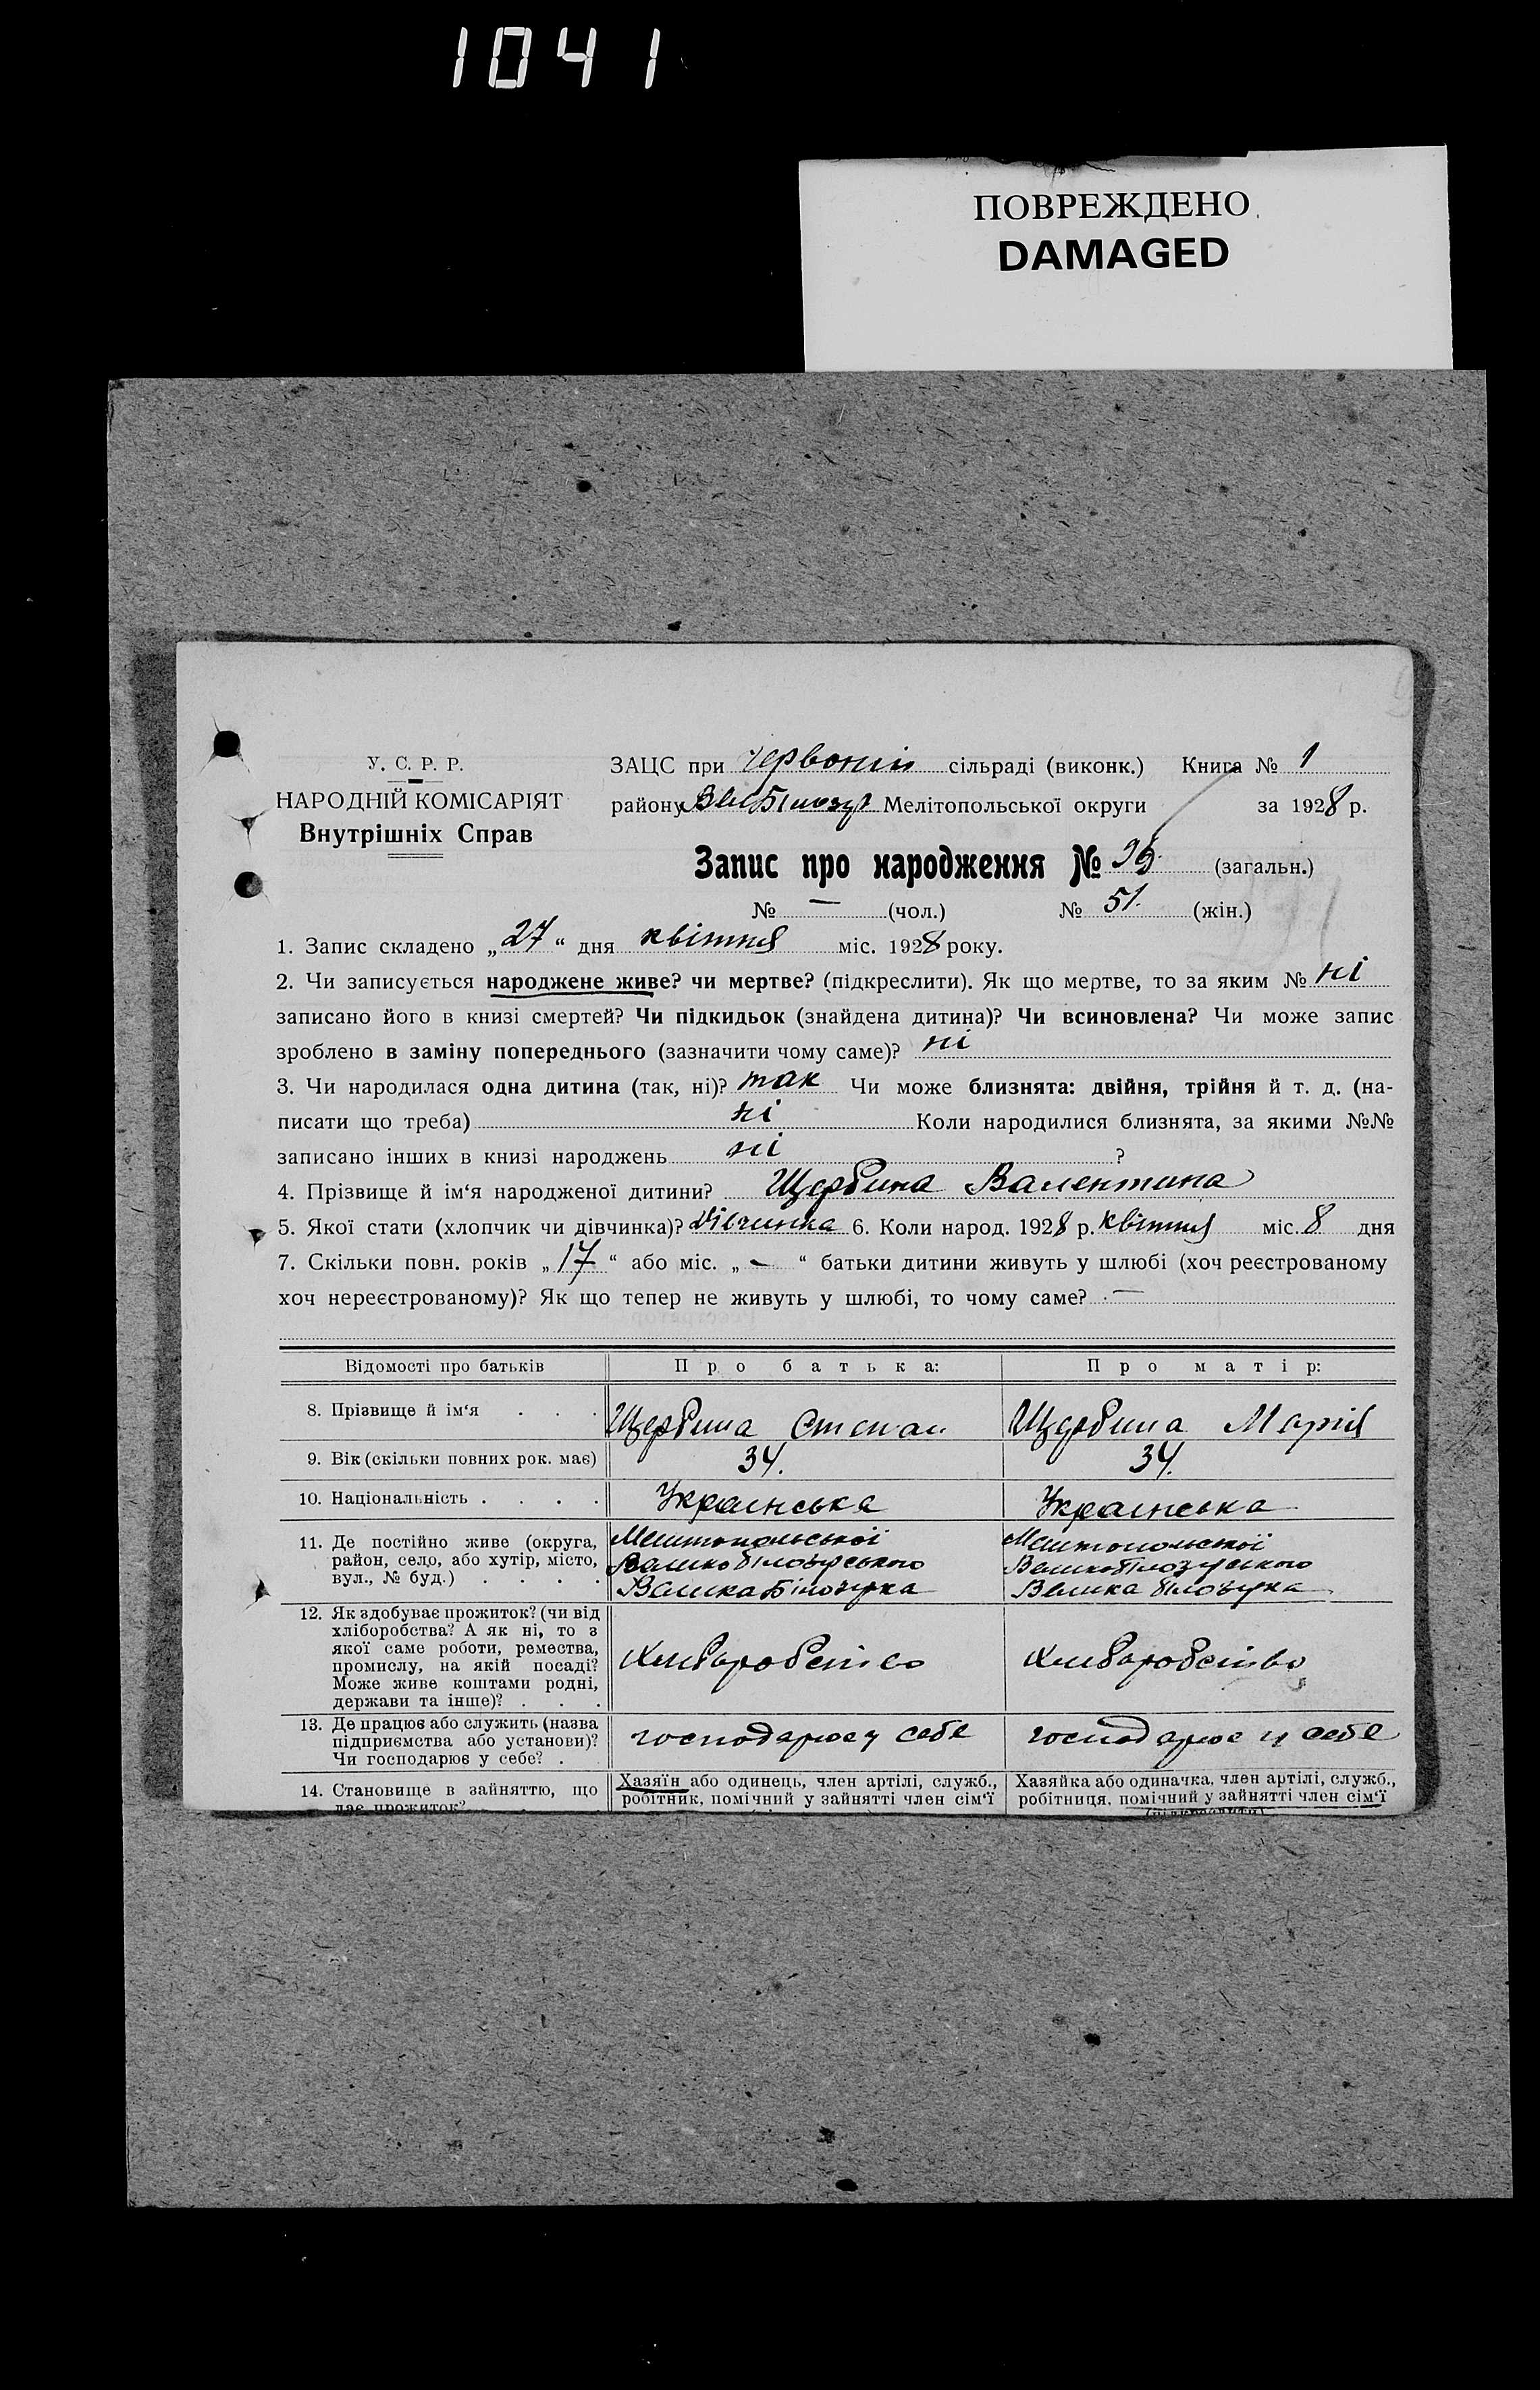 1041
ПОВРЕЖДЕНО
DAMAGED
У. С. Р. Р.
НАРОДНІЙ КОМІСАРІЯТ
Внутрішніх Справ
ЗАЦС при Червоній сільраді (виконк.) Книга № 1
району Вел Білозур Мелітопольської округи за 1928 р.
Запис про народження № (загальн.)
№ — (чол.) № 51. (жін.)
1. Запис складено „27“ дня квітня міс. 1928 року.
2. Чи записується народжене живе? чи мертве? (підкреслити). Як що мертве, то за яким № ні
записано його в книзі смертей? Чи підкидьок (знайдена дитина)? Чи всиновлена? Чи може запис
зроблено в заміну попереднього (зазначити чому саме)? ні
3. Чи народилася одна дитина (так, ні)? так Чи може близнята: двійня, трійня й т. д. (на-
писати що треба) ні Коли народилися близнята, за якими №№
записано інших в книзі народжень ні ?
4. Прізвище й ім‘я народженої дитини? Щербина Валентина
5. Якої стати (хлопчик чи дівчинка)? дівчинка 6. Коли народ. 1928 р. квітня міс. 8 дня
7. Скільки повн. років „17“ або міс. „—“ батьки дитини живуть у шлюбі (хоч реєстрованому
хоч нереєстрованому)? Як що тепер не живуть у шлюбі, то чому саме? —
Відомості про батьків Про батька: Про матір:
8. Прізвище й ім‘я . . . Щербина Степан Щербина Марія
9. Вік (скільки повних рок. має) 34. 34.
10. Національність . . . . Українська Українська
11. Де постійно живе (округа, Мелітопольської Мелітопольскої
район, село, або хутір, місто, Великобілозурського Великобілозурського
вул., № буд.) . . . . Велика Білозурка Велика Білозурка
12. Як здобуває прожиток? (чи від
хліборобства? А як ні, то з
якої саме роботи, ремества,
промислу, на якій посаді? Хліборобство Хліборобство
Може живе коштами родні,
держави та інше)? . . .
13. Де працює або служить (назва
підприємства або установи)? господарює у себе господарює у себе
Чи господарює у себе? .
14. Становище в зайняттю, що Хазяїн або одинець, член артілі, служб., Хазяйка або одиначка, член артілі, служб.,
дає прожиток? робітник, помічний у зайнятті член сім‘ї робітниця, помічний у зайнятті член сім‘ї